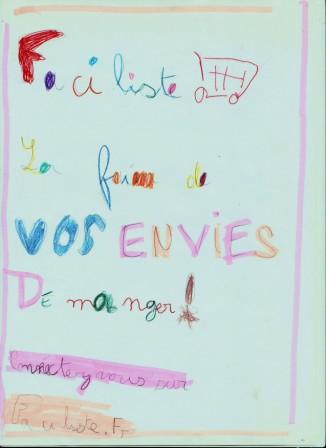 Faciliste
La faim de
VOS ENVIES
DÉ manger !
Connectez vous sur
Faciliste.Fr